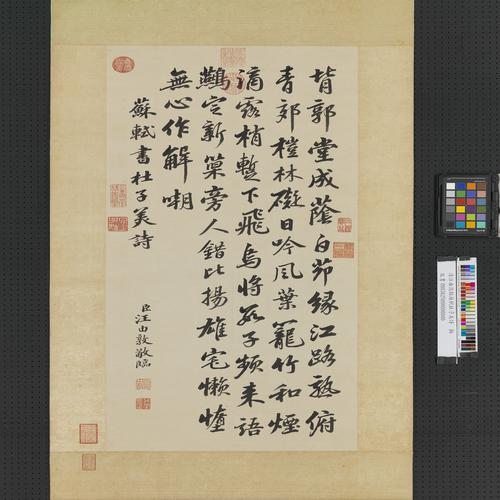 背郭堂成蔭白茆緣江路熟俯
青郊榿林礙日吟風葉籠竹和煙
滴露梢蹔下飛烏將數子頻來語
鷰定新巢旁人錯比揚雄宅懶惰
無心作解嘲
蘇軾書杜子美詩
臣汪由敦敬臨